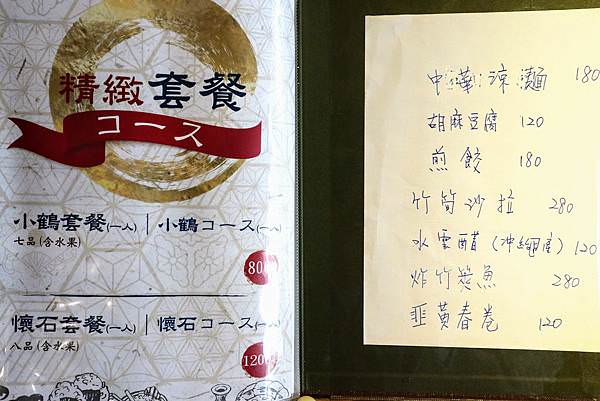 精緻套餐
コース
小鶴套餐(一人)|小鶴コース(一人)
七品(含水果)
800
懷石套餐(一人)|懷石コース(一人)
八品(含水果)
1200
中華涼麵 180
胡麻豆腐 120
煎餃 180
竹筍沙拉 280
水雲醋(沖繩産) 120
炸竹筴魚 280
韭黃春卷 120